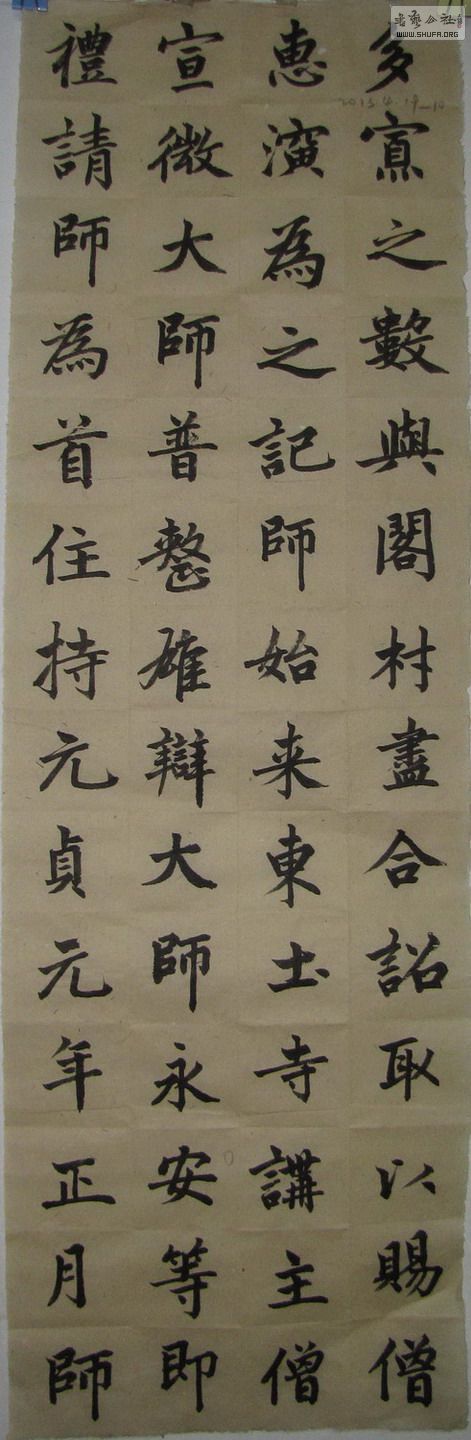 多寡之數與閣村盡合詔取以賜僧
惠演為之記師始来東土寺講主僧
宣微大師普整雄辯大師永安等即
禮請師為首住持元貞元年正月師
2015.4.19—10
書藝公社
WWW.SHUFA.ORG